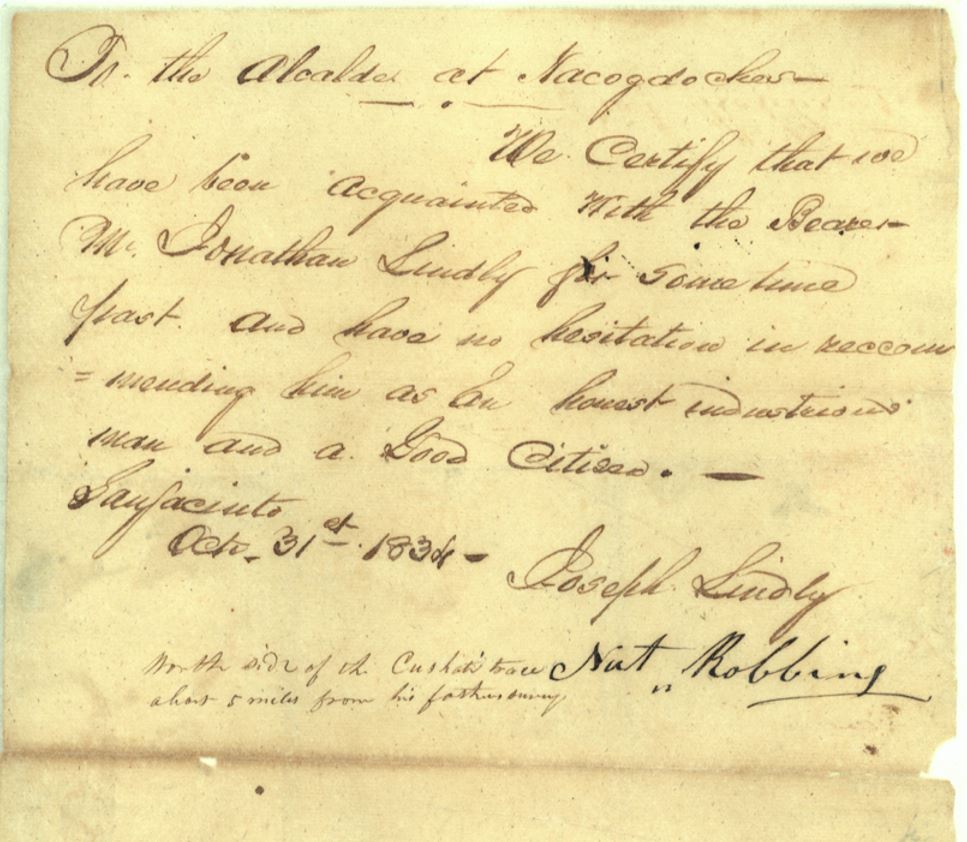 To. the Alcalde at Nacogdoches —
We. Certify that we
have been acquainted With the Bearer
Mr. Jonathan Lindly for some time
past. and have no hesitation in reccom
= mending him as an honest industrious
man and a. Good Citisen. —
Sanjacinto
Octr. 31st. 1834 —
Joseph. Lindly
Nat Robbins
North side of the Cushati trace
about 5 miles from his fathers survey